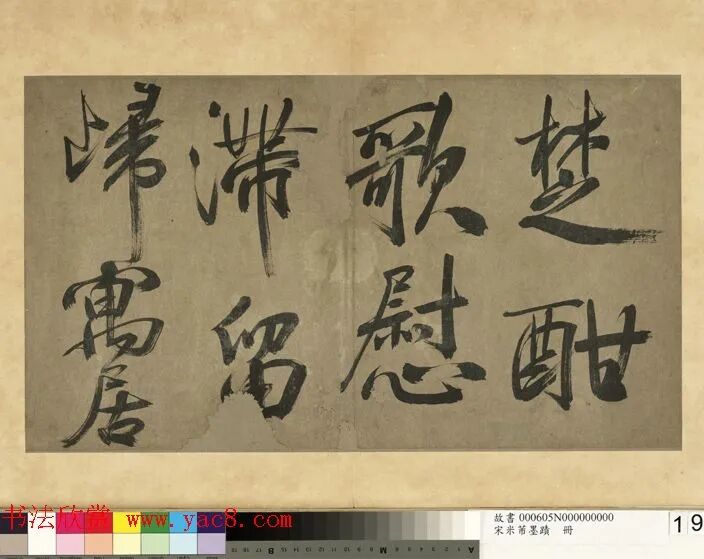 楚酣
歌慰
滯留
歸寓居
书法欣赏 www.yac8.com
故書 000605N000000000
宋米芾墨蹟 冊
19